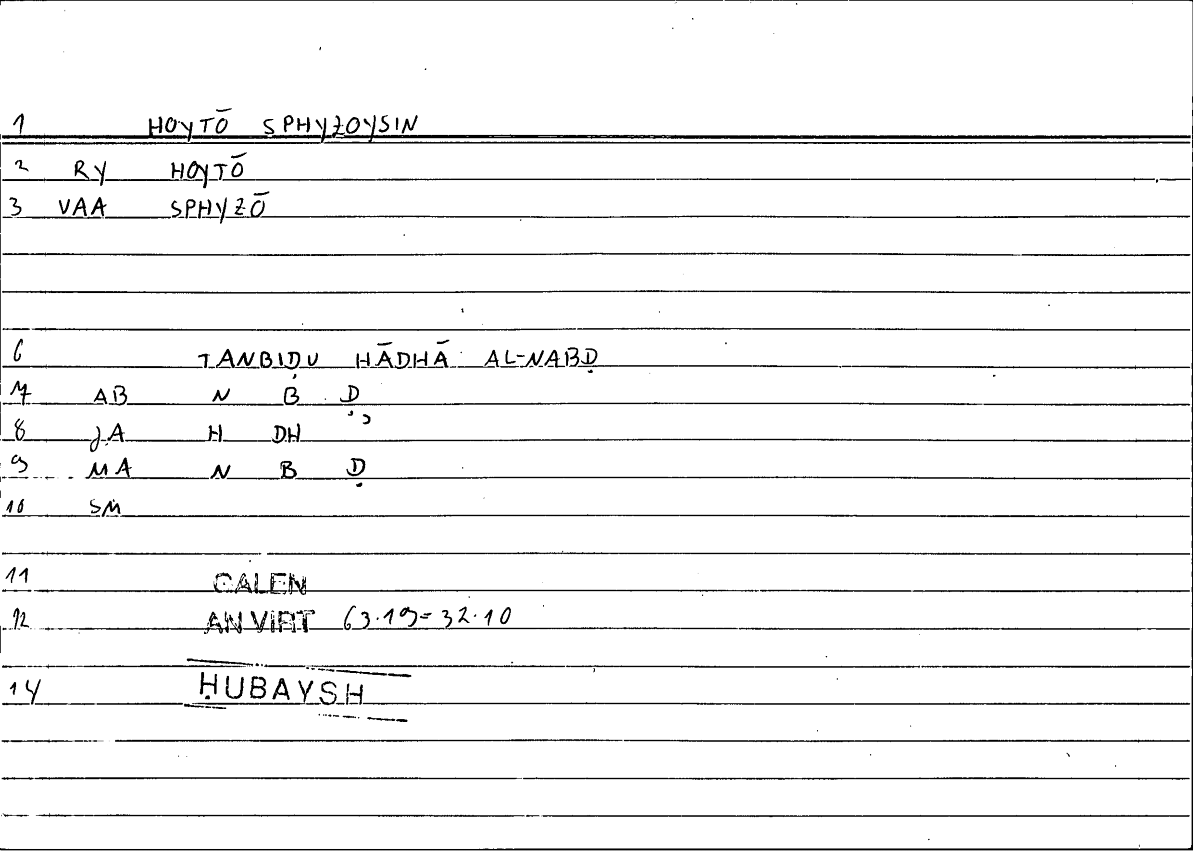 1 HOYTŌ SPHYZOYSIN
2 RY HOYTŌ
3 VAA SPHYZŌ
6 TANBIḌU HĀDHĀ AL-NABḌ
7 AB N B Ḍ
8 JA H DH
9 MA N B Ḍ
10 SM
11 GALEN
12 AN VIRT 63.19=32.10
14 ḤUBAYSH